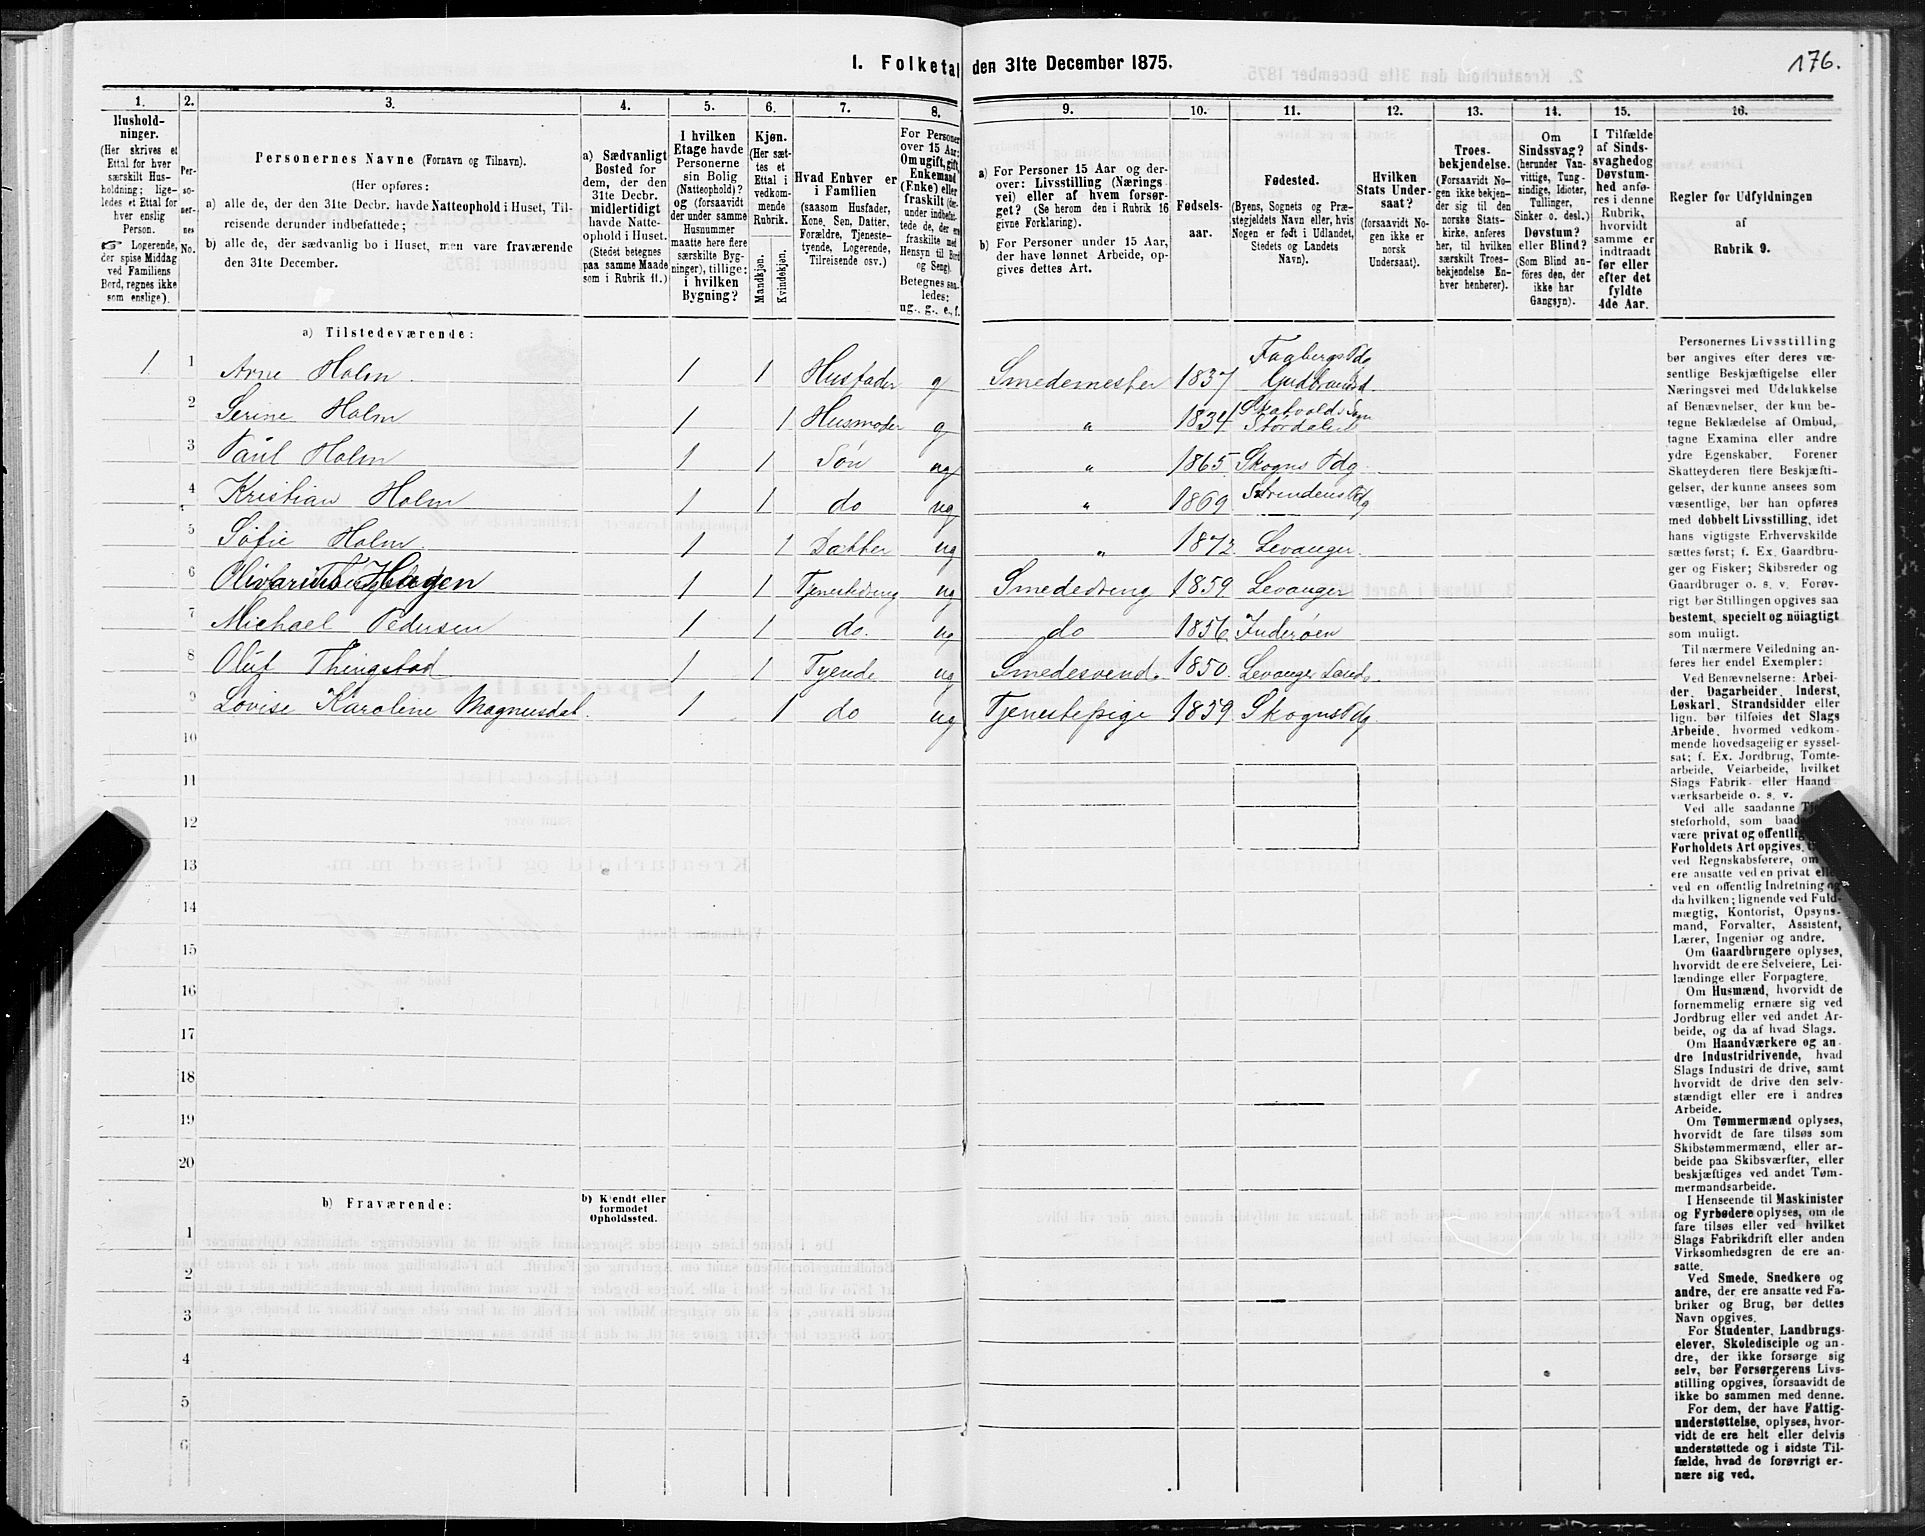 176.
1. Folketal den 31te December 1875.
1. 2. 3. 4. 5. 6. 7. 8. 9. 10. 11. 12. 13. 14. 15. 16.
Hushold-
ninger.
(Her skrives et
Ettal for hver
særskilt Hus-
holdning; lige-
ledes et Ettal for
hver enslig
Person.
☞ Logerende,
der spise Middag
ved Familiens
Bord, regnes ikke
som enslige).
Per-
so-
ner-
nes
No.
Personernes Navne (Fornavn og Tilnavn).
(Her opføres:
a) alle de, der den 31te Decbr. havde Natteophold i Huset, Til-
reisende derunder indbefattede;
b) alle de, der sædvanlig bo i Huset, men vare fraværende
den 31te December.
a) Sædvanligt
Bosted for
dem, der den
31te Decbr.
midlertidigt
havde Natte-
ophold i Huset.
(Stedet betegnes
paa samme Maade
som i Rubrik 11.)
I hvilken
Etage havde
Personerne
sin Bolig
(Natteophold)?
og (forsaavidt
der under samme
Husnummer
maatte høre flere
særskilte Byg-
ninger), tillige:
i hvilken
Bygning?
Kjøn.
(Her sæt-
tes et
Ettal i
vedkom-
mende
Rubrik.
Mandkjøn.
Kvindekjøn.
Hvad Enhver er
i Familien
(saasom Husfader,
Kone, Søn, Datter,
Forældre, Tjeneste-
tyende, Logerende,
Tilreisende osv.)
For Personer
over 15 Aar:
Om ugift, gift,
Enkemand
(Enke) eller
fraskilt (der-
under indbefat-
tede de, der ere
fraskilte med
Hensyn til Bord
og Seng).
Betegnes saa-
ledes:
ug., g., e., f.
a) For Personer 15 Aar og der-
over: Livsstilling (Nærings
vei) eller af hvem forsør-
get? (Se herom den i Rubrik 16
givne Forklaring).
b) For Personer under 15 Aar,
der have lønnet Arbeide, op-
gives dettes Art.
Fødsels-
aar.
Fødested.
(Byens, Sognets og Præ-
stegjeldets Navn eller, hvis
Nogen er født i Udlandet,
Stedets og Landets
Navn).
Hvilken
Stats Under-
saat?
(forsaavidt No-
gen ikke er
norsk
Undersaat).
Troes-
bekjendelse.
(Forsaavidt No-
gen ikke bekjen-
der sig til den
norske Stats-
kirke, anføres
her, til hvilken
særskilt Troes-
bekjendelse En-
hver henhører).
Om
Sindssvag?
(herunder Van-
vittige, Tung-
sindige, Idioter,
Tullinger,
Sinker o. desl.)
Døvstum?
eller Blind?
(Som Blind an-
føres den, der
ikke har
Gangsyn).
I Tilfælde
af Sinds-
svaghed og
Døvstum-
hed anfø-
res i denne
Rubrik,
hvorvidt
samme er
indtraadt
før eller
efter det
fyldte
4de Aar.
Regler for Udfyldningen
af
Rubrik 9.
a) Tilstedeværende:
1 1 Arne Holm. 1 1 Husfader g Smedemester 1837 Faabergs Pdg Gudbrandsd.
2 Serine Holm 1 1 Husmoder g " 1834 Skatvolds Sogn Størdalen
3 Paul Holm 1 1 Søn ug " 1865 Skogns Pdg.
4 Kristian Holm 1 1 do ug " 1869 Strindens Pdg
5 Sofie Holm. 1 1 Datter ug " 1872 Levanger.
6 Olivarius Hagen 1 1 Tjenestedreng ug Smededreng 1859 Levanger
7 Michael Pedersen 1 1 do. ug do 1856 Inderøen
8 Oluf Thingstad 1 1 Tyende ug Smedesvend. 1850. Levanger Lands.
9 Lovise Karoline Magnusdat. 1 1 do ug Tjenestepige 1859 Skogns Pdg.
10
11
12
13
14
15
16
17
18
19
20
b) Fraværende:
b) Kjendt eller
formodet
Opholdssted.
1
2
3
4
5
6
Personernes Livsstilling
bør angives efter deres væ-
sentlige Beskjæftigelse eller
Næringsvei med Udelukkelse
af Benævnelser, der kun be-
tegne Beklædelse af Ombud,
tagne Examina eller andre
ydre Egenskaber. Forener
Skatteyderen flere Beskjæfti-
gelser, der kunne ansees som
væsentlige, bør han opføres
med dobbelt Livsstilling, idet
hans vigtigste Erhvervskilde
sættes først; f. Ex. Gaardbru-
ger og Fisker; Skibsreder og
Gaardbruger o. s. v. Forøv-
rigt bør Stillingen opgives saa
bestemt, specielt og nöiagtigt
som muligt.
Til nærmere Veiledning an-
føres her endel Exempler:
Ved Benævnelserne: Arbei-
der, Dagarbeider, Inderst,
Løskarl, Strandsidder eller
lign. bør tilføies det Slags
Arbeide, hvormed vedkom-
mende hovedsagelig er syssel-
sat; f. Ex. Jordbrug, Tomte-
arbeide, Veiarbeide, hvilket
Slags Fabrik- eller Haand-
værksarbeide o. s. v.
Ved alle saadanne
steforhold, som
være privat og
Forholdets Art opgives,
ved Regnskabsførere, om
ere ansatte ved en privat
ved en offentlig Indretning og
da hvilken; lignende ved Fuld-
mægtig, Kontorist, Opsyns-
mand, Forvalter, Assistent,
Lærer, Ingeniør og andre.
Om Gaardbrugere oplyses,
hvorvidt de ere Selveiere, Lei-
lændinge eller Forpagtere.
Om Husmænd, hvorvidt de
fornemmelig ernære sig ved
Jordbrug eller ved andet Ar-
beide, og da af hvad Slags.
Om Haandværkere og an-
dre Industridrivende, hvad
Slags Industri de drive, samt
hvorvidt de drive den selv-
stændigt eller ere i andres
Arbeide.
Om Tømmermænd oplyses,
hvorvidt de fare tilsøs som
Skibstømmermænd, eller ar-
beide paa Skibsværfter, eller
beskjæftiges ved andet Tøm-
mermandsarbeide.
I Henseende til Maskinister
og Fyrbødere oplyses, om de
fare tilsøs eller ved hvilket
Slags Fabrikdrift eller anden
Virksomhedsgren de ere an-
satte.
Ved Smede, Snedkere og
andre, der ere ansatte ved Fa-
briker og Brug, bør dettes
Navn opgives.
For Studenter, Landbrugs-
elever, Skoledisciple og an-
dre, der ikke forsørge sig
selv, bør Forsørgerens Livs-
stilling opgives, forsaavidt de
ikke bo sammen med denne.
For dem, der have Fattig-
understøttelse, oplyses, hvor-
vidt de ere helt eller delvis
understøttede og i sidste Til-
fælde, hvad de forøvrigt er-
nære sig ved.